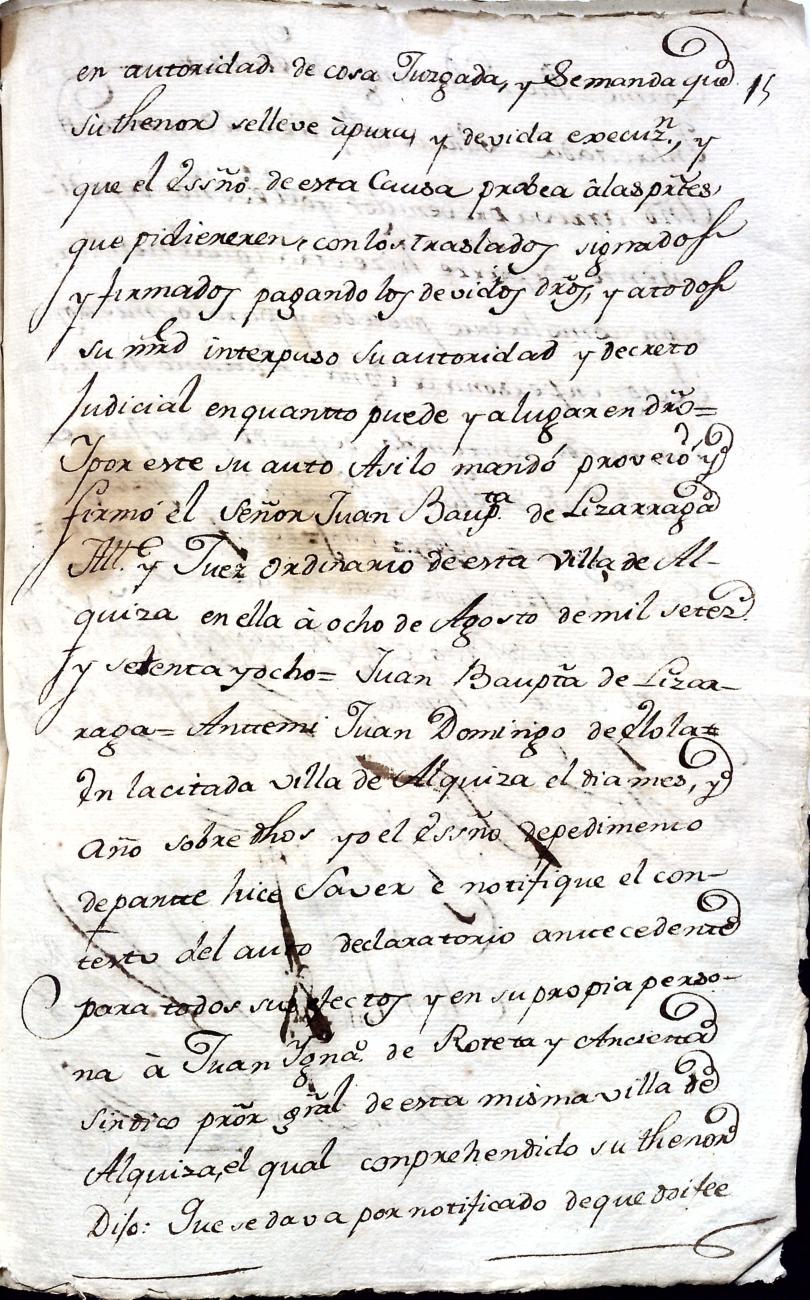 en autoridad de cosa Juzgada, y Semanda que 15
su thenor selleve àpura, y devida execuz.n, y
que el Essño. de esta Causa probea âlas prtes
que pidiereren, con los traslados signados
y firmados pagando los devidos drõs, y atodos
su mrd interpuso su autoridad y decreto
Judicial enquantto puede y alugar en drõ=
Ypor este su auto Asilo mandó proveió y
firmó el Señor Juan Baup.ta de Lizarraga
All.e y Juez ordinario de esta villa de Al-
quiza en ella à ocho de Agosto de mil setez.
y setenta yocho= Juan Baupta de Lizar-
raga= Anttemi Juan Domingo de Elola=
En lacitada villa de Alquiza el dia mes, y
Año sobre dhos yo el Essño depedimento
departte hice Saver è notifique el con-
testo del auto declaratorio anttecedente
para todos sus efectos y en su propia perso-
na à Juan Ygna.o de Roteta y Ancieta
sindico prõr grãl de esta misma villa de
Alquiza, el qual comprehendido su thenor
Dijo: Que se dava por notificado de que doifee